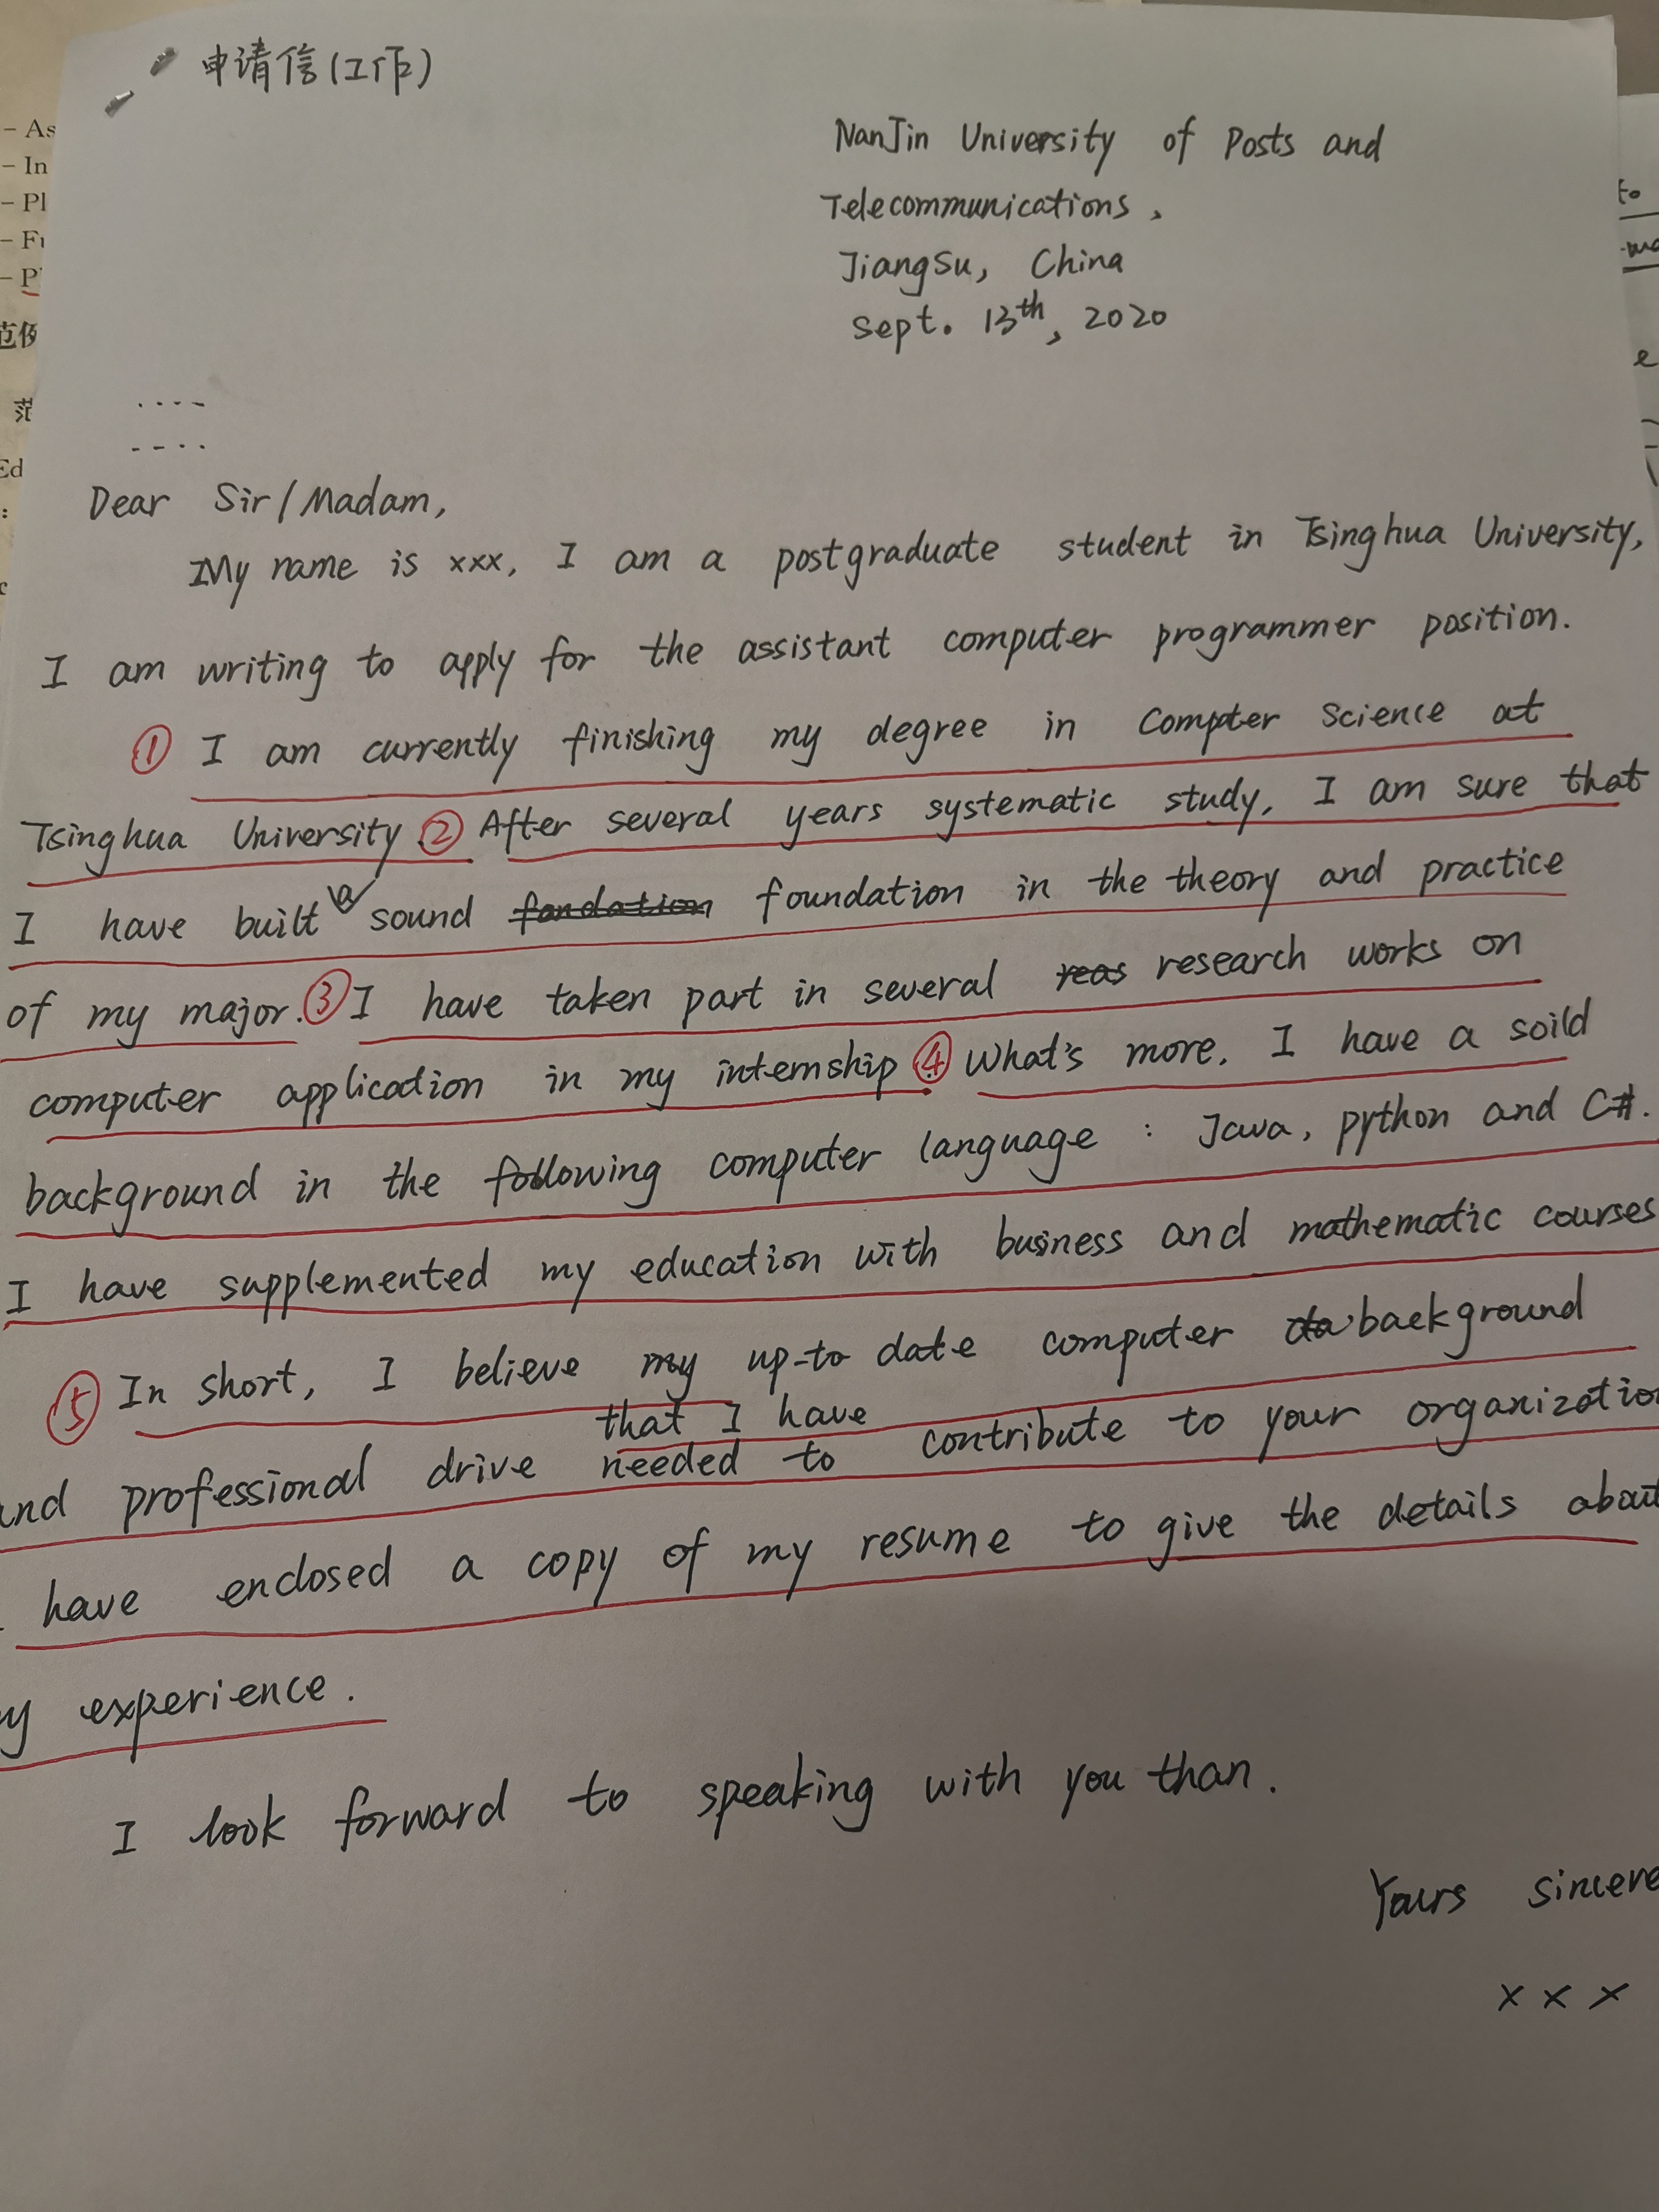 申请信(工作)
NanJin University of Posts and
Telecommunications,
JiangSu, China
Sept. 13th, 2020
Dear Sir/Madam,
My name is xxx, I am a postgraduate student in Tsinghua University,
I am writing to apply for the assistant computer programmer position.
① I am currently finishing my degree in Compter Science at
Tsinghua University. ② After several years systematic study, I am sure that
I have built a sound fandation foundation in the theory and practice
of my major. ③ I have taken part in several reas research works on
computer application in my internship ④ What's more, I have a soild
background in the following computer language : Java, python and C#.
I have supplemented my education with business and mathematic courses
⑤ In short, I believe my up-to date computer da background
that I have
and professional drive needed to contribute to your organization
have enclosed a copy of my resume to give the details about
experience.
I look forward to speaking with you than.
Yours sincere
x x x
- As
- In
- Pl
- Fu
- P
范例
范
Ed
:
c
to
e